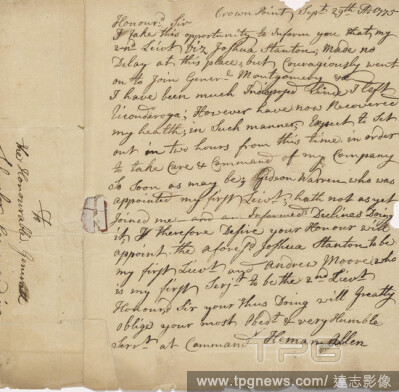 Crown Point, Sept 29th AD 1775
Honourd Sir
I take this opportunity to Inform you that my
2nd Lievt viz Joshua Stanton, made no
Delay at this place, but Couragiously went
on to Join Generl Montgomery &c
I have been much Indisposed Since I Left
Ticonderoga; However have now Recovered
my health, in Such manner, Expect to Set
out in two hours from this time in order
to take Care & Command of my Company
So Soon as may be; Gideon Warren who was
appointed my first Lievt, hath not as yet
Joined me and am Informed Declines Doing
it, I therefore Desire your Honour will
appoint the aforesd Joshua Stanton to be
my first Lievt and Andrew Moore who
is my first Serjt to be the 2nd Lievt
Honourd Sir your thus Doing will Greatly
oblige your most Obedt & very Humble
Servt at Command Heman Allen
To
the Honourable General
TPG
www.tpgnews.com/ 達志影像